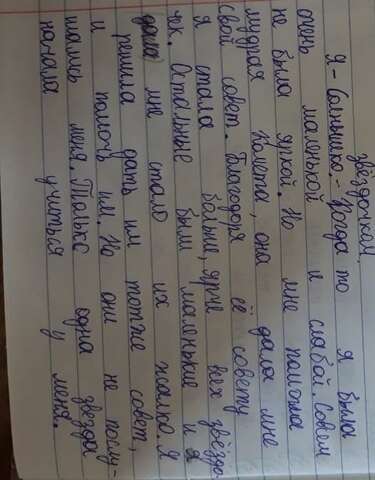 звёздочкой,
Я - Солнышко. - Когда то я была
очень маленькой и слабой. Совем
не была яркой. Но мне помогла
мудрая Комета, она дала мне
свой совет. Благодоря её совету
я стала больше, ярче всех звёздо-
чек. Остальные были маленькие и
мне стало их жалко. Я
решила дать им тотже совет,
и помочь им. Но они не послу-
шались меня. Только одна звезда
начала учиться у меня.